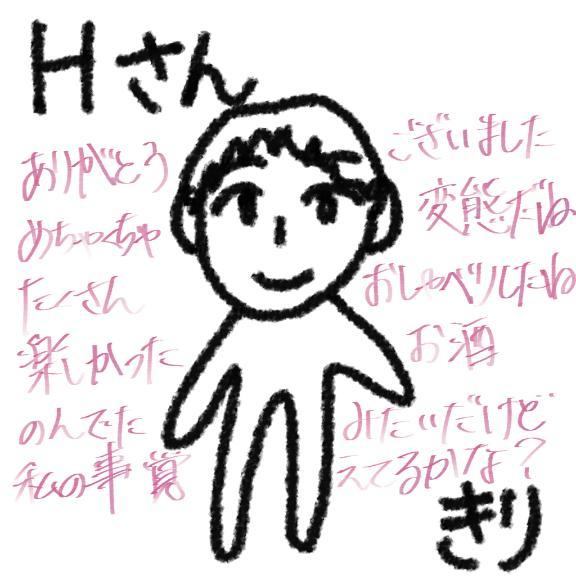 Hさん
ありがとう ございました
めちゃくちゃ 変態だね
たくさん おしゃべりしたね
楽しかった お酒
のんでた みたいだけど
私の事覚 えてるかな？
きり